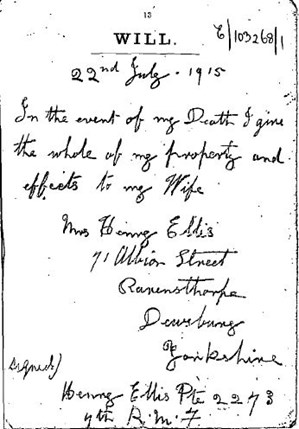 13
WILL.
E/103268/1
22nd July. 1915
In the event of my Death I give
the whole of my property and
effects to my Wife
Mrs Henry Ellis
71 Albion Street
Ravensthorpe
Dewsbury
Yorkshire
Signed)
Henry Ellis Pte 2273
4th R.M.F